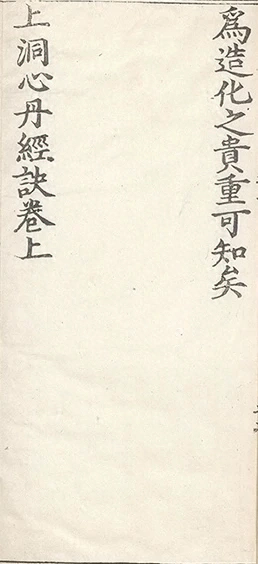 爲造化之貴重可知矣
上洞心丹經訣卷上